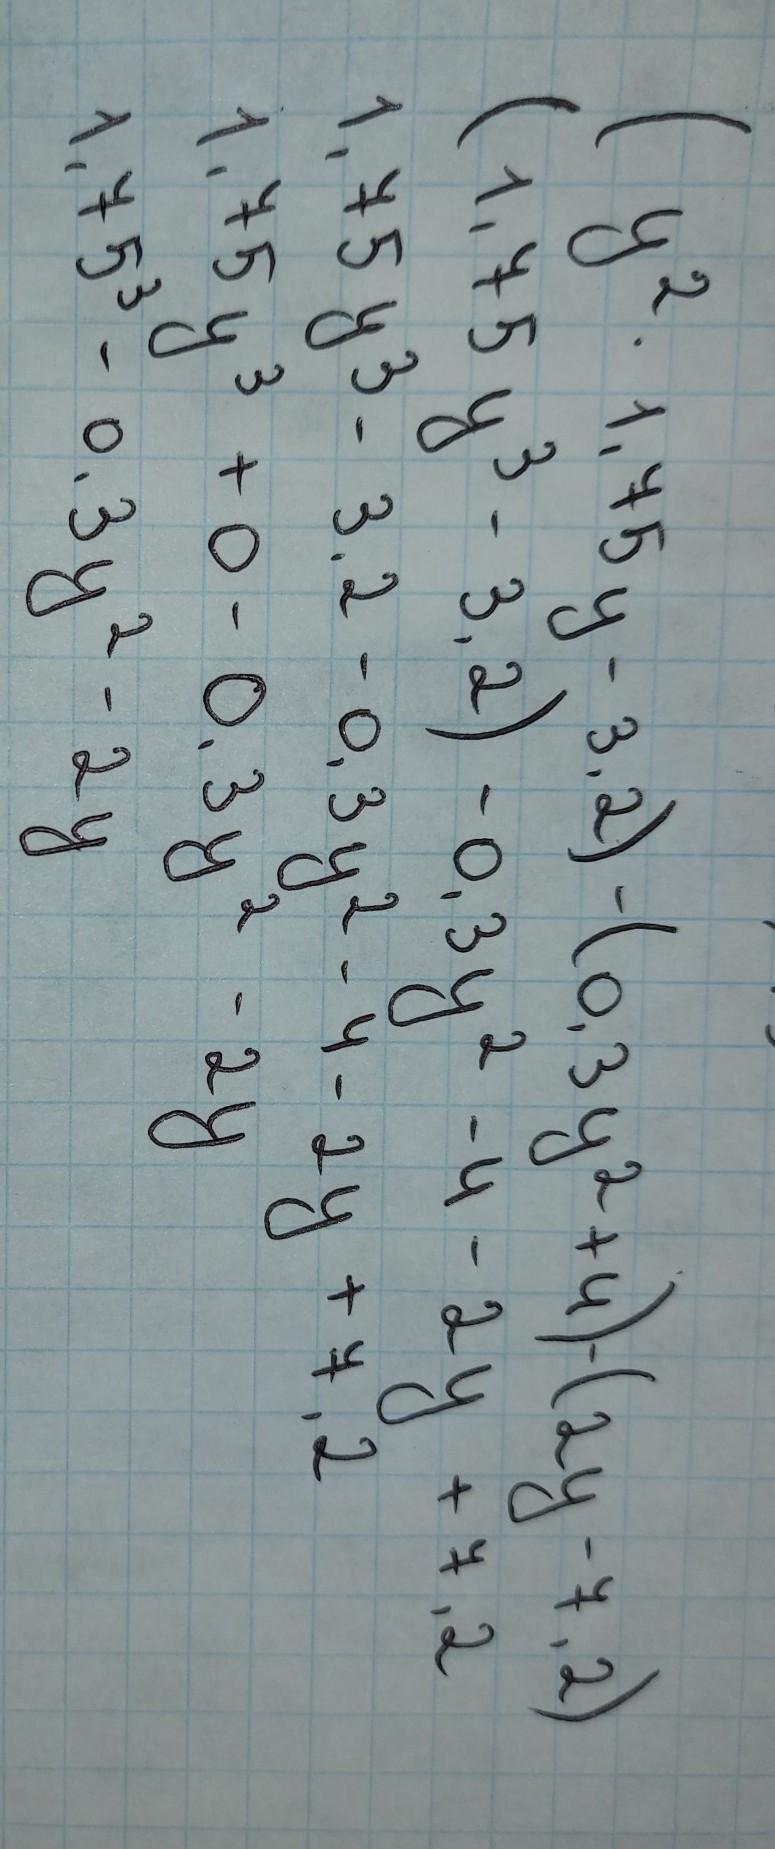 (y². 1,75y - 3,2) - (0,3y² + 4) - (2y - 7,2)
(1,75y³ - 3,2) - 0,3y² - 4 - 2y + 7,2
1,75y³ - 3,2 - 0,3y² - 4 - 2y + 7,2
1,75y³ + 0 - 0,3y² - 2y
1,75³ - 0,3y² - 2y